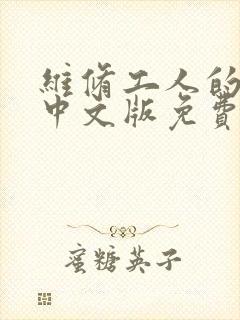 維脩工人的
中文版免費
蜜糖英子